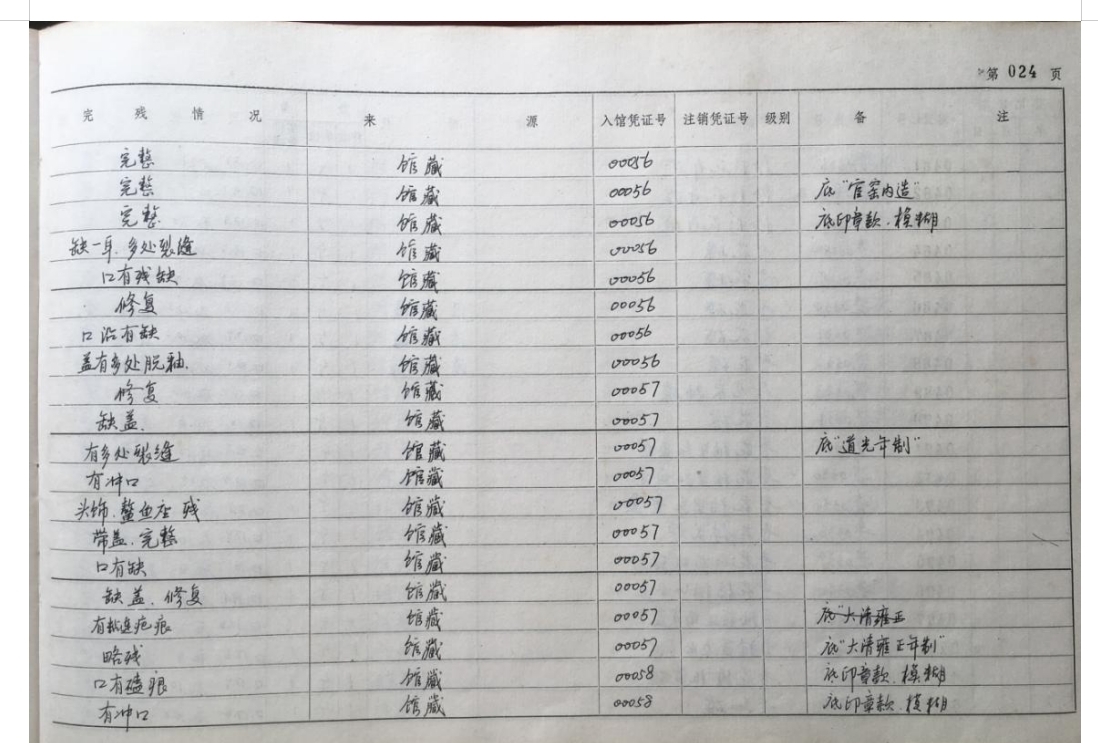 第 024 页
完残情况 来源 入馆凭证号 注销凭证号 级别 备注
完整 馆藏 00056
完整 馆藏 00056 底"官窑内造"
完整 馆藏 00056 底印章款.模糊
缺一耳.多处裂缝 馆藏 00056
口有残缺 馆藏 00056
修复 馆藏 00056
口沿有缺 馆藏 00056
盖有多处脱釉. 馆藏 00056
修复 馆藏 00057
缺盖. 馆藏 00057
有多处裂缝 馆藏 00057 底"道光年制"
有冲口 馆藏 00057
头饰.鳌鱼座残 馆藏 00057
带盖.完整 馆藏 00057
口有缺 馆藏 00057
缺盖.修复 馆藏 00057
有 疤痕 馆藏 00057 底"大清雍正
略残 馆藏 00057 底"大清雍正年制"
口有磕痕 馆藏 00058 底印章款.模糊
有冲口 馆藏 00058 底印章款.模糊